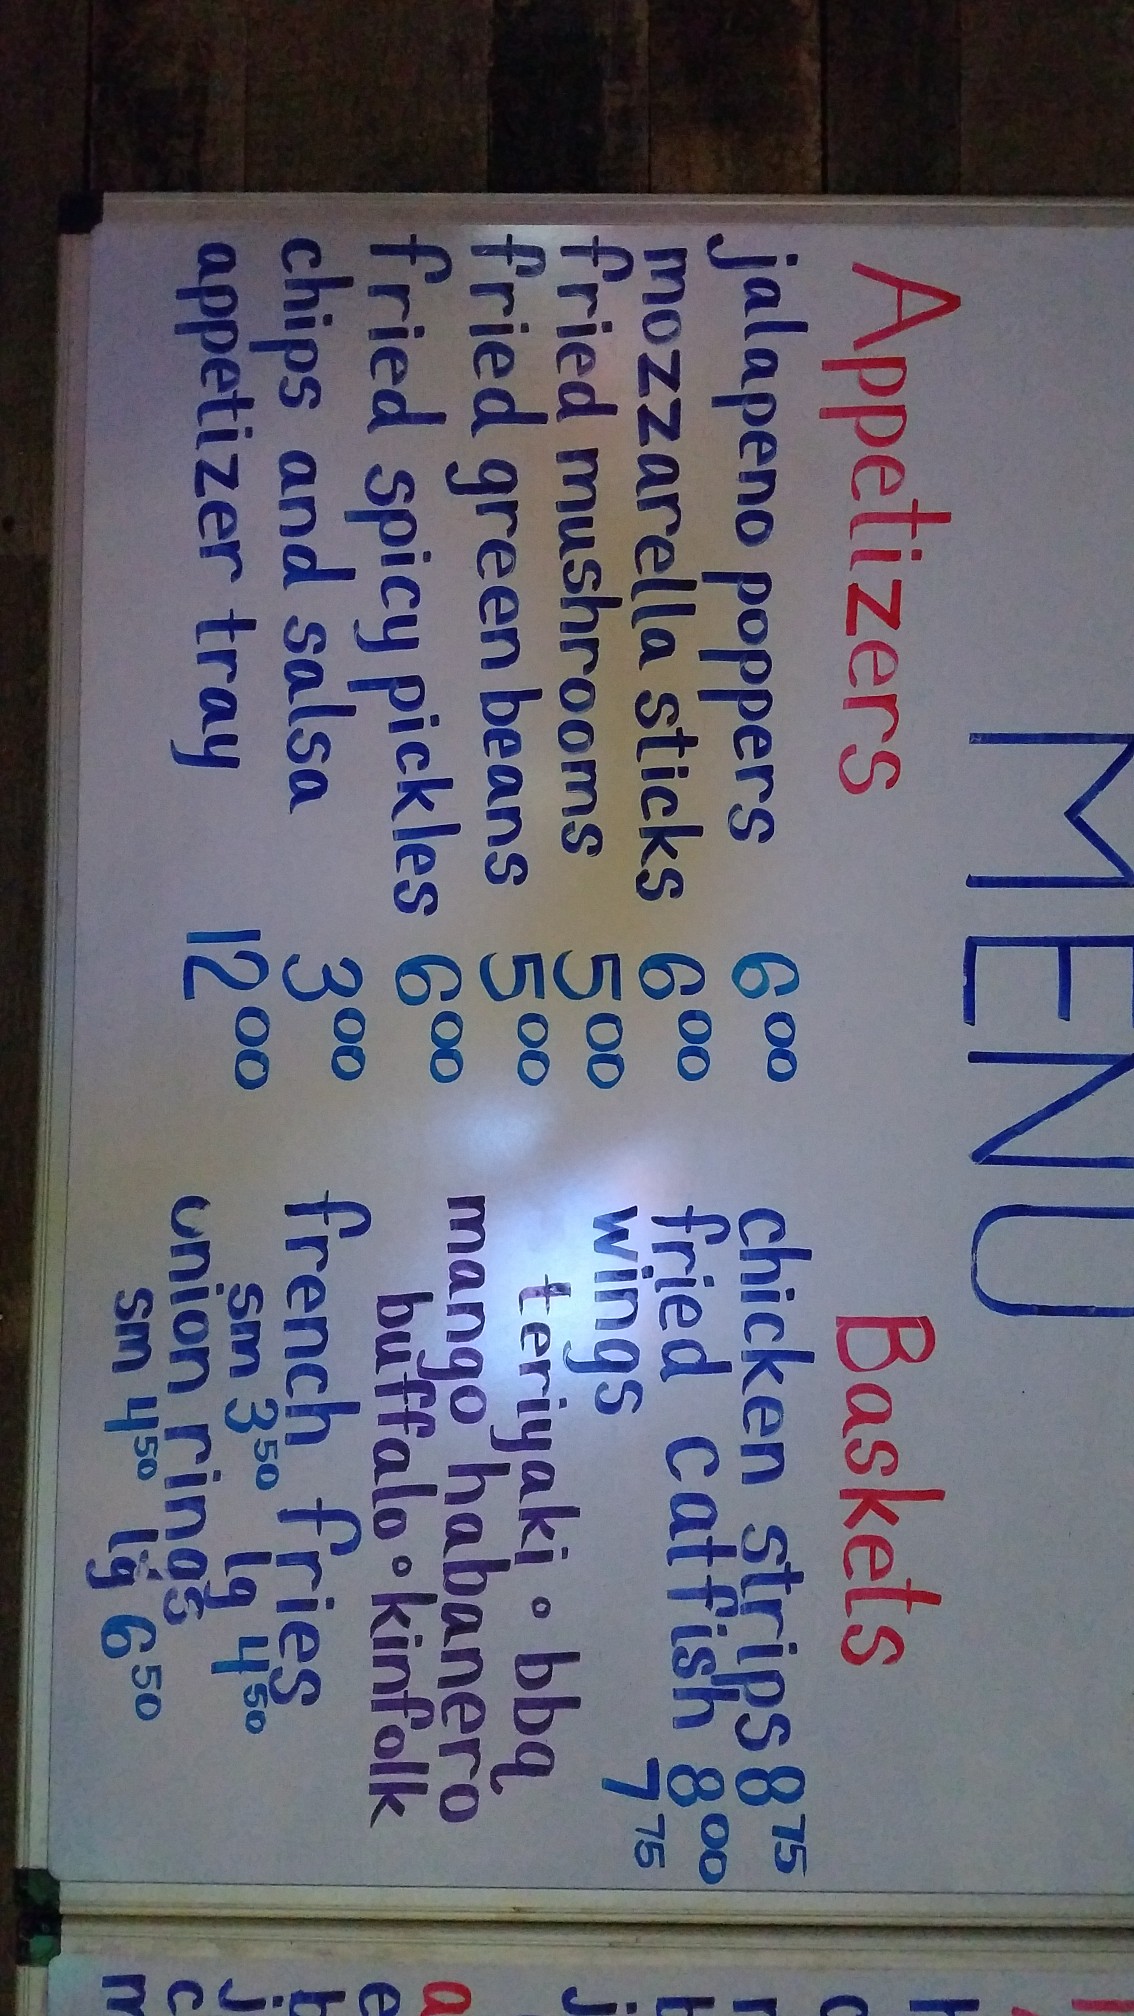 MENU
Appetizers
jalapeno poppers 6 00
mozzarella sticks 6 00
fried mushrooms 5 00
fried green beans 5 00
fried spicy pickles 6 00
chips and salsa 3 00
appetizer tray 12 00
Baskets
chicken strips 8 75
fried catfish 8 00
wings 7 75
teriyaki • bbq
mango habanero
buffalo • kinfolk
french fries
sm 3 50 lg 4 50
onion rings
sm 4 50 lg 6 50